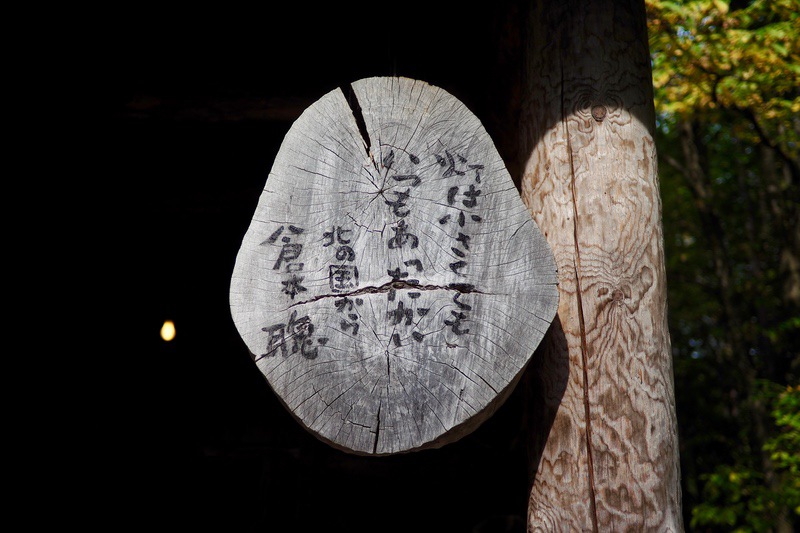 灯は小さくても
いつもあったかい
北の国から
倉本聰